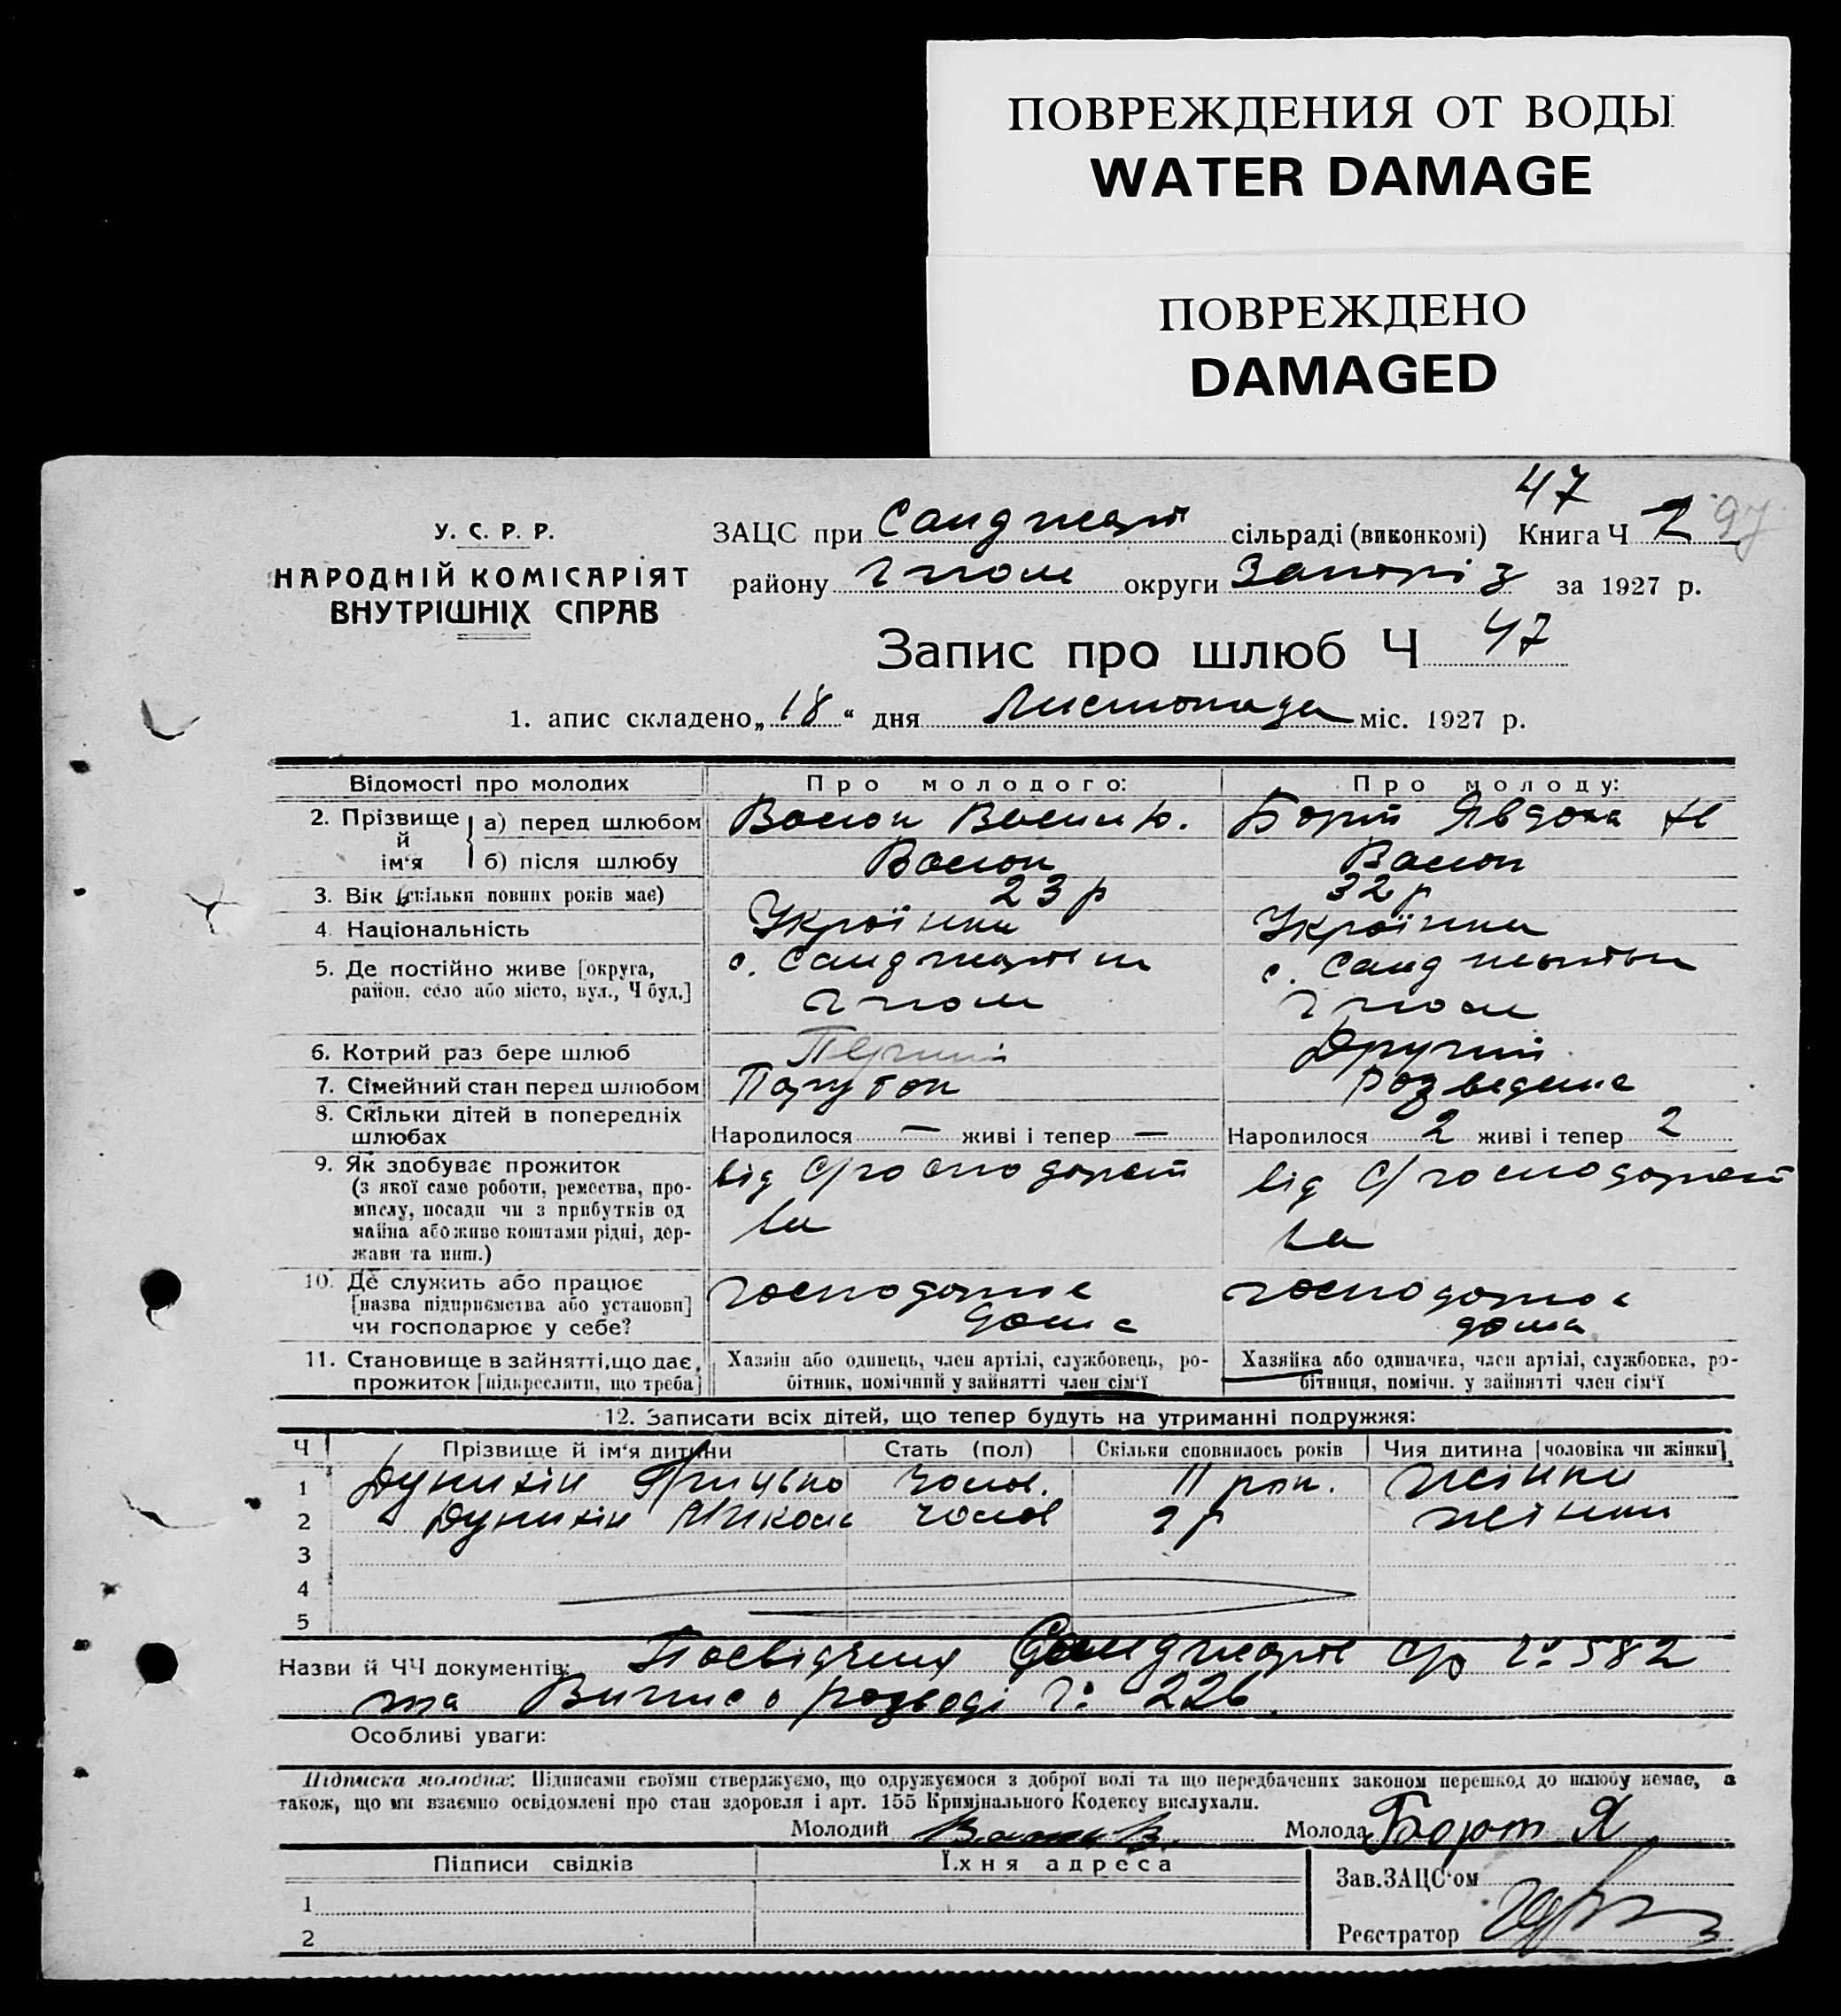 ПОВРЕЖДЕНИЯ ОТ ВОДЫ
WATER DAMAGE
ПОВРЕЖДЕНО
DAMAGED
47
У. С. Р. Р.
НАРОДНІЙ КОМІСАРІЯТ
ВНУТРІШНІХ СПРАВ
ЗАЦС при Санджарі сільраді (виконкомі) Книга Ч 2 97
району округи Запоріз за 1927 р.
Запис про шлюб Ч 47
1. апис складено „18“ дня Листопада міс. 1927 р.
Відомості про молодих
Про молодого:
Про молоду:
2. Прізвище й ім‘я
а) перед шлюбом
Борт Явдоха
б) після шлюбу
3. Вік (скільки повних років має)
23 р
32 р
4. Національність
Українець
Українка
5. Де постійно живе [округа, район, село або місто, вул., Ч буд.]
6. Котрий раз бере шлюб
Перший
Другий
7. Сімейний стан перед шлюбом
Парубок
Розведена
8. Скільки дітей в попередніх шлюбах
Народилося — живі і тепер —
Народилося 2 живі і тепер 2
9. Як здобуває прожиток
(з якої саме роботи, ремества, про-
мислу, посади чи з прибутків од
майна або живе коштами рідні, дер-
жави та инш.)
від с/господарст
ва
від с/господарст
ва
10. Де служить або працює
[назва підприємства або установи]
чи господарює у себе?
господарює
дома
господарює
дома
11. Становище в зайнятті, що дає,
прожиток [підкреслити, що треба]
Хазяїн або одинець, член артілі, службовець, ро-
бітник, помічний у зайнятті член сім‘ї
Хазяйка або одиначка, член артілі, службовка, ро-
бітниця, помічн. у зайнятті член сім‘ї
12. Записати всіх дітей, що тепер будуть на утриманні подружжя:
Ч Прізвище й ім‘я дитини Стать (пол) Скільки сповнилось років Чия дитина [чоловіка чи жінки]
1 Грицько Чолов. 11 рок. жінки
2 Микола чолов р жінки
3
4
5
Назви й ЧЧ документів: Посвідченя Санджарс с/р № 582
та Випис о розводі № 226
Особливі уваги:
Підписка молодих: Підписами своїми стверджуємо, що одружуємося з доброї волі та що передбачених законом перешкод до шлюбу немає, а
також, що ми взаємно освідомлені про стан здоровля і арт. 155 Кримінального Кодексу вислухали.
Молодий Молода Борт Я
Підписи свідків
Їхня адреса
Зав.ЗАЦС‘ом
1
2
Реєстратор